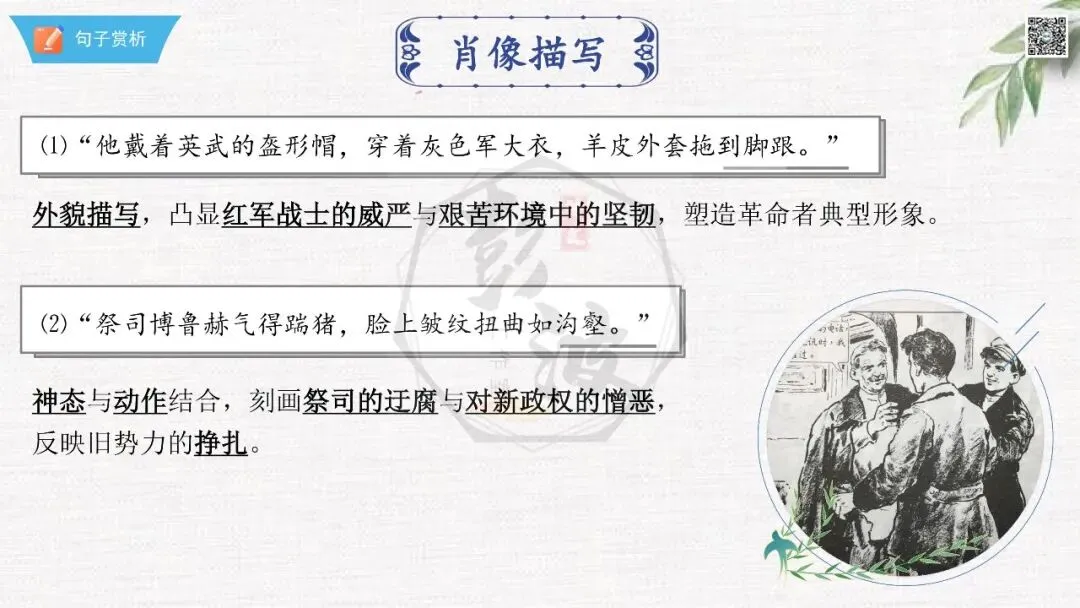 句子赏析
肖像描写
⑴“他戴着英武的盔形帽，穿着灰色军大衣，羊皮外套拖到脚跟。”
外貌描写，凸显红军战士的威严与艰苦环境中的坚韧，塑造革命者典型形象。
⑵“祭司博鲁赫气得踹猪，脸上皱纹扭曲如沟壑。”
神态与动作结合，刻画祭司的迂腐与对新政权的憎恶，
反映旧势力的挣扎。